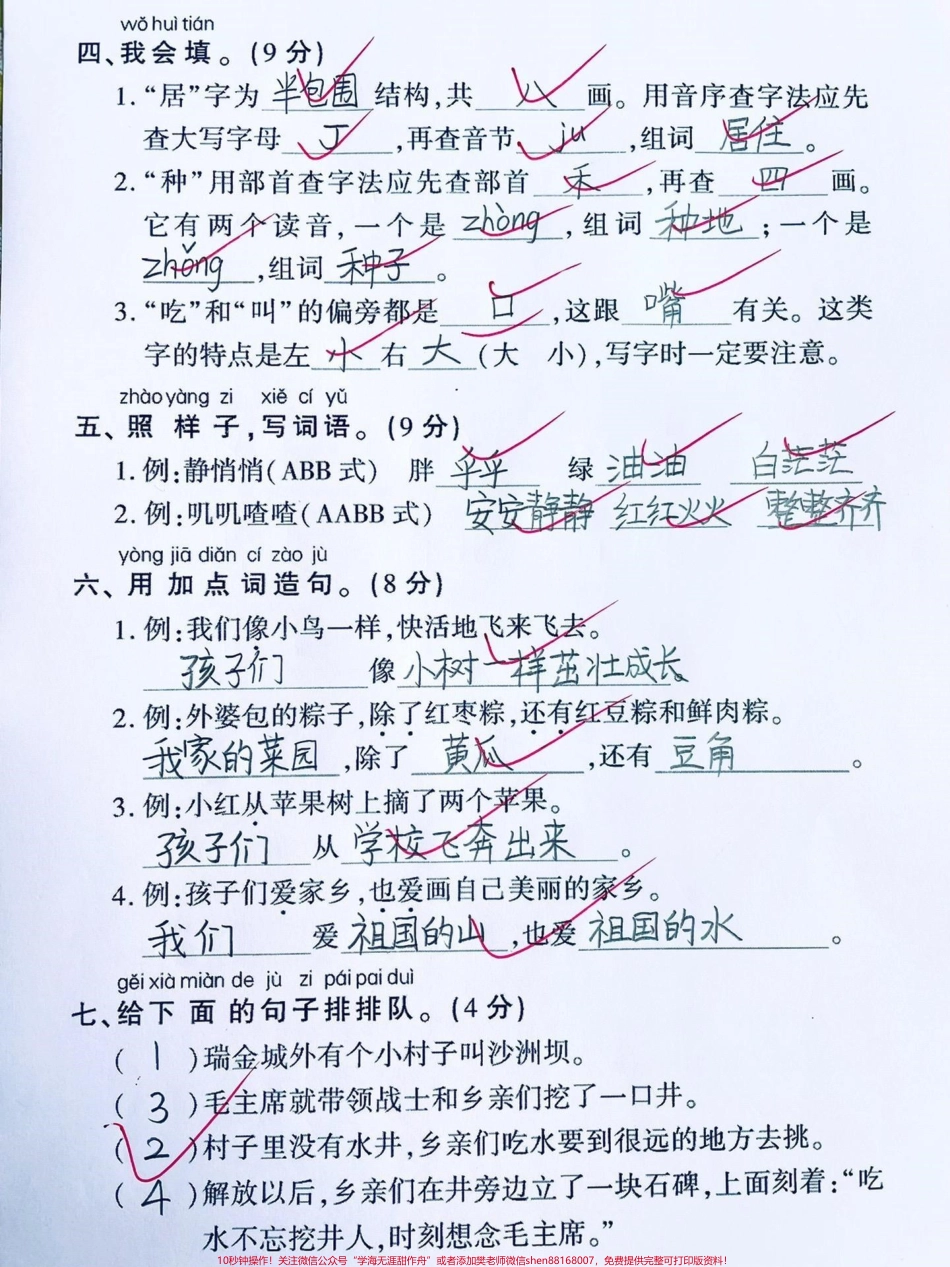 wǒ huì tián
四、我会填。(9分)
1.“居”字为 半包围 结构,共 八 画。用音序查字法应先
查大写字母 J ,再查音节 ju ,组词 居住 。
2.“种”用部首查字法应先查部首 禾 ,再查 四 画。
它有两个读音,一个是 zhòng ,组词 种地 ;一个是
zhǒng ,组词 种子 。
3.“吃”和“叫”的偏旁都是 口 ,这跟 嘴 有关。这类
字的特点是左 小 右 大 (大 小),写字时一定要注意。
zhào yàng zi xiě cí yǔ
五、照样子,写词语。(9分)
1.例:静悄悄(ABB式) 胖 乎乎 绿 油油 白茫茫
2.例:叽叽喳喳(AABB式) 安安静静 红红火火 整整齐齐
yòng jiā diǎn cí zào jù
六、用加点词造句。(8分)
1.例:我们像小鸟一样,快活地飞来飞去。
孩子们 像 小树一样茁壮成长
2.例:外婆包的粽子,除了红枣粽,还有红豆粽和鲜肉粽。
我家的菜园 ,除了 黄瓜 ,还有 豆角 。
3.例:小红从苹果树上摘了两个苹果。
孩子们 从 学校飞奔出来 。
4.例:孩子们爱家乡,也爱画自己美丽的家乡。
我们 爱 祖国的山 ,也爱 祖国的水 。
gěi xià miàn de jù zi pái pai duì
七、给下面的句子排排队。(4分)
( 1 )瑞金城外有个小村子叫沙洲坝。
( 3 )毛主席就带领战士和乡亲们挖了一口井。
( 2 )村子里没有水井,乡亲们吃水要到很远的地方去挑。
( 4 )解放以后,乡亲们在井旁边立了一块石碑,上面刻着:“吃
水不忘挖井人,时刻想念毛主席。”
10秒钟操作！关注微信公众号“学海无涯甜作舟”或者添加樊老师微信shen88168007，免费提供完整可打印版资料！